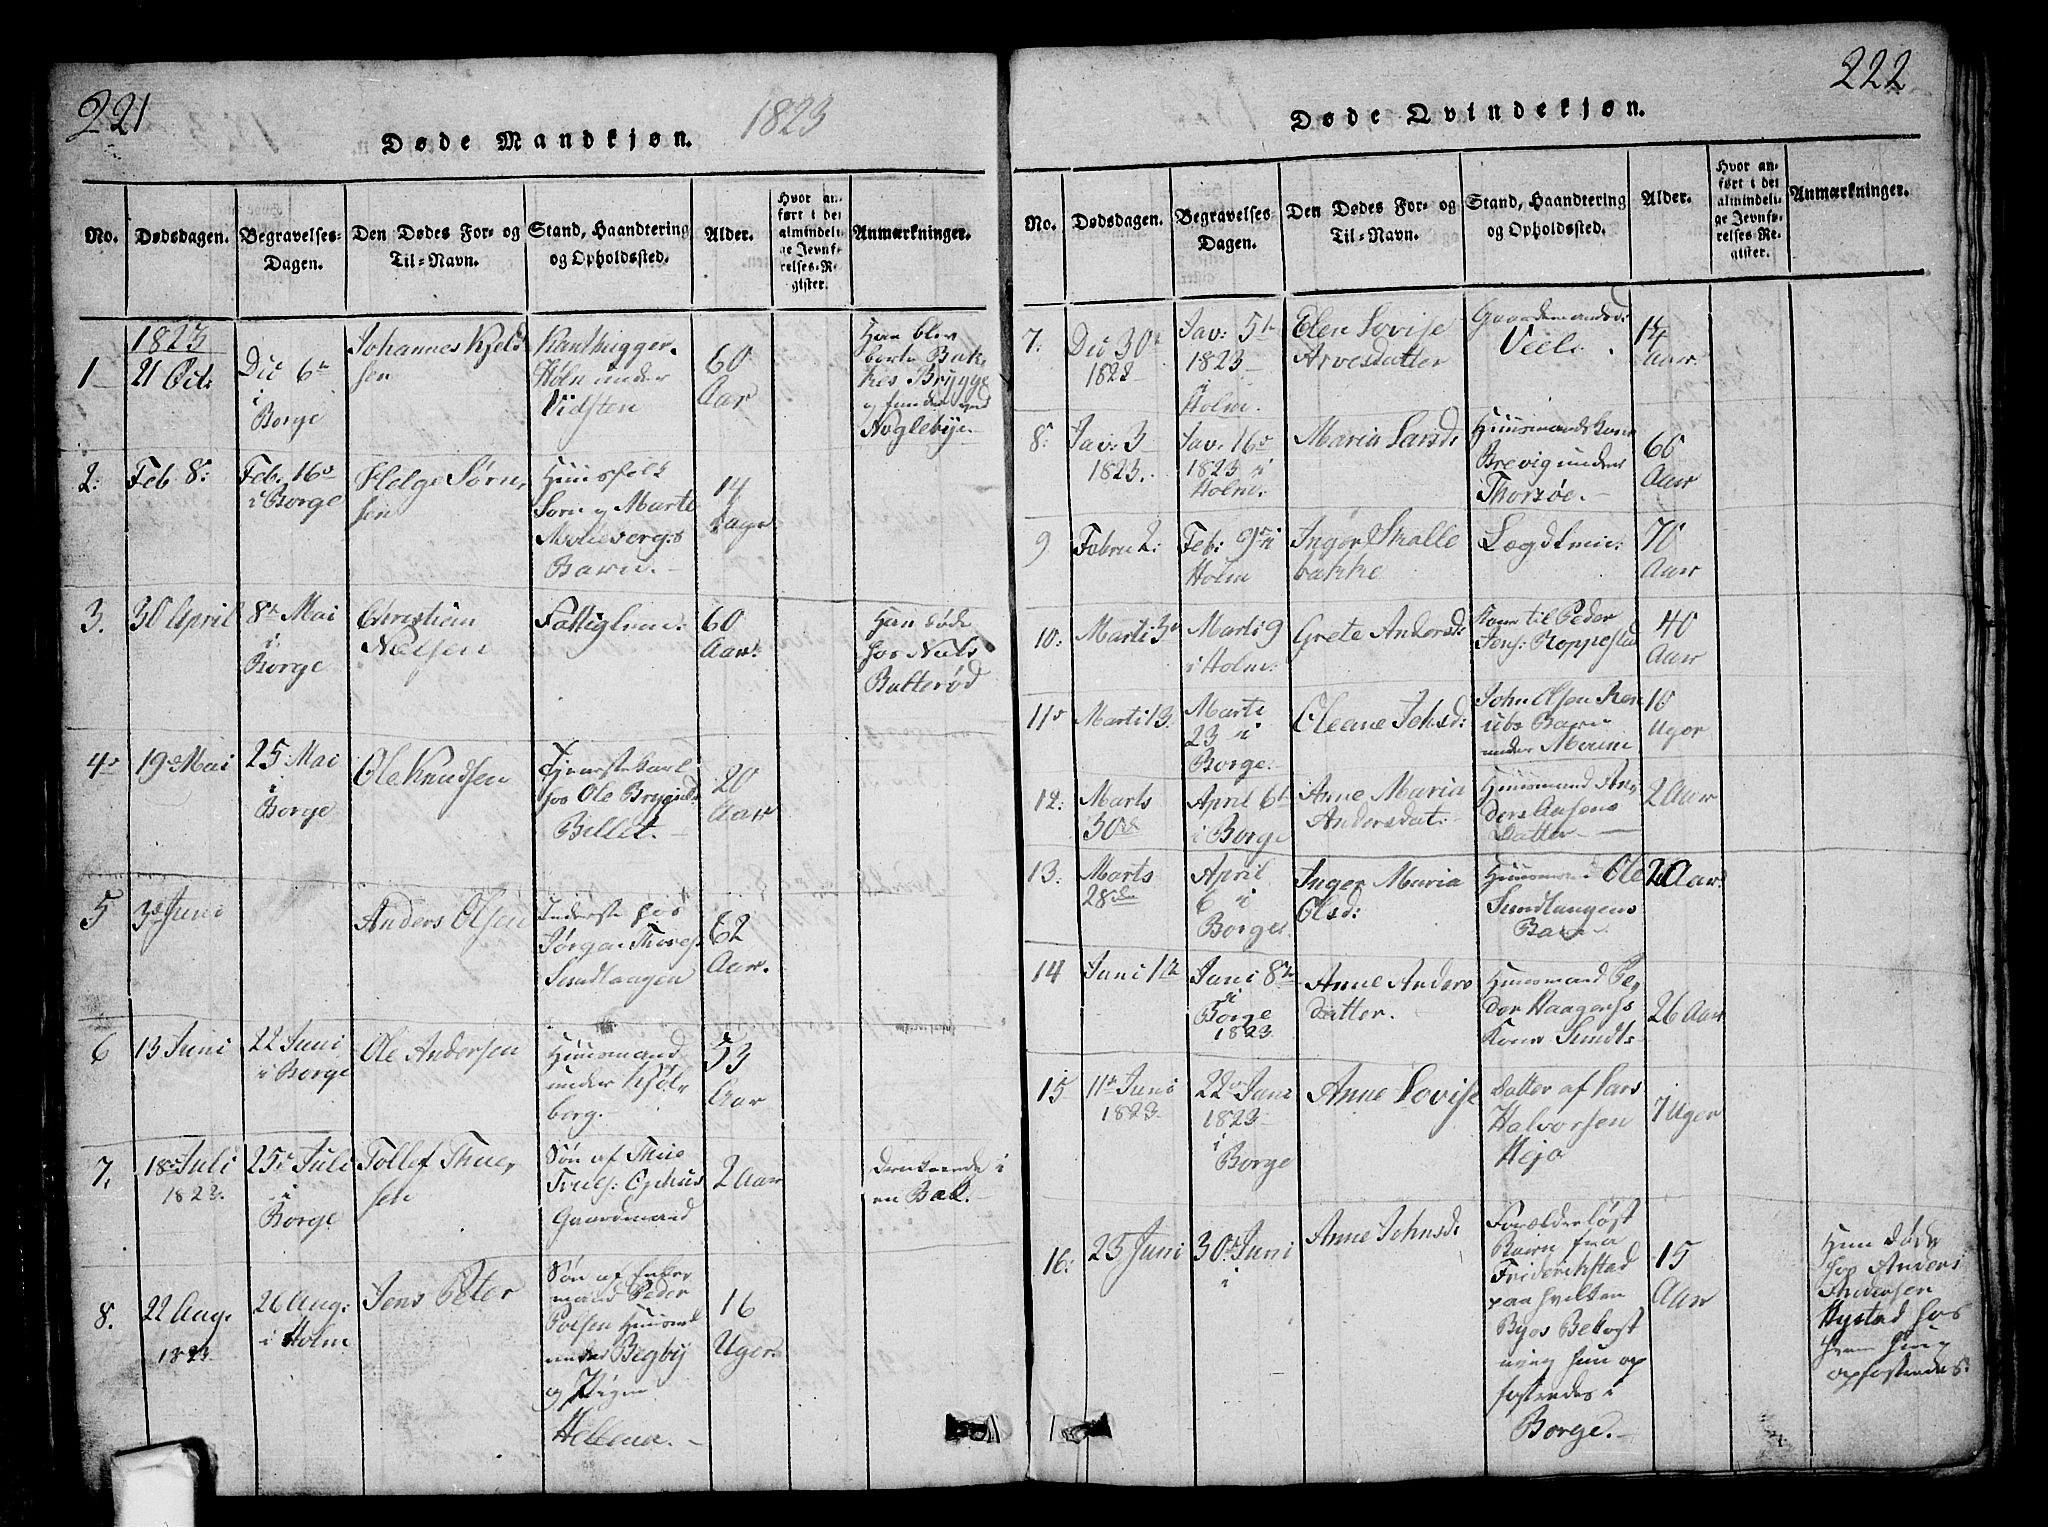 221
Døde Mandkjøn.
1823
No.
Dødsdagen.
Begravelses-
Dagen.
Den Dødes For- og
Til-Navn.
Stand, Haandtering
og Opholdssted.
Alder.
Hvor an-
ført i det
almindeli-
ge Jevnfø-
relses-Re-
gister.
Anmærkninger.
1823
1
21 Oct:
Dec 6te
i
Borge
Johannes Kjels
sen
under
Vidsten
60
Aar
Han blev
borte
Brygge
Noglebye
2.
Feb 8:
Feb. 16de
i Borge
Helge Sørn,
sen
Huusfolk
Sørn og Marte
Barn.
14
Dage
3.
30 April
8de Mai
i
Borge
Christian
Nielsen
Fattiglem.
60
Aar.
Han døde
hos Niels
Butterød
4de
19de Mai
25 Mai
i
Borge
Ole Knudsen
Tjenestekarl
hos Ole
20
Aar
5
3de Juni
Anders Olsen
Inderste hos
Jørgen
Sundlaugen
62
Aar.
6
13 Juni
22 Juni
i Borge
Ole Andersen
Huusmand
under Kjøl,
berg.
53
Aar
7.
18de Juli
1823.
25de Juli
i
Borge
Tollef Thue,
sen
Søn af Thue
Truls: Ophus
Gaardmand
2 Aar
druknede i
en Bæk.
8.
22 Aug.
1823.
26 Aug:
i Holm
Jens Peter
Søn af Enke
mand Peder
Polsen Huusmd
under Begby
og Pigen
Hellena.
16
Uger
222
Døde Qvindekjøn.
No.
Dødsdagen.
Begravelses-
Dagen.
Den Dødes For- og
Til-Navn.
Stand, Haandtering
og Opholdssted.
Alder.
Hvor an-
ført i det
almindeli-
ge Jevnfø-
relses-Re-
gister.
Anmærkninger.
7.
Dec 30te
1822
Jav: 5te
1823
i
Holm.
Elen Lovise
Arvesdatter
Gaardemandsd:
14
Aar
8.
Jav: 3
1823.
Jav. 16de
1823 i
Holm.
Maria Larsd:
Huusmandskone
Brevig under
Thorsøe.
60
Aar
9
Febru 2:
Feb: 9de i
Holm
Inger Skalle
bakke
Lægdslem:
70
Aar
10.
Marti 3de
Marti 9
i Holm.
Grete Andersd:
Kone til Peder
Jens: Roppestad
40
Aar
11te
Marti 13.
Marti
23 i
Borge.
Oleane Johsd:
John Olsen
Barn
under
10
Uger
12.
Marts
30te
April 6te
i Borge
Anne Maria
Andersdat:
Huusmand An,
ders Aasens
Datter
2 Aar
13.
Marts
28de
April
6 i
Borge
Inger Maria
Olsd:
Huusmand Ole
Sundlaugens
Barn
2 Aar.
14
Juni 1te
Juni 8de
i
Borge
1823
Anne Anders
datter.
Huusmand Pe,
der Haagens
Kone Sundt:
26 Aar
15
11te Juni
1823.
22de Juni
1823
i
Borge
Anne Lovise
Datter af Lars
Halvorsen
Heja
7 Uger
16:
25 Juni
30de Juni
i
Anne Johnsd:
Forælderløst
Barn fra
Friderichstad
paa hvilken
Byes Bekost
ning hun op
fostredes i
Borge.
15
Aar
Hun døde
hos Anders
Andersen
Rystad hos
hvem hun
opfostredes.